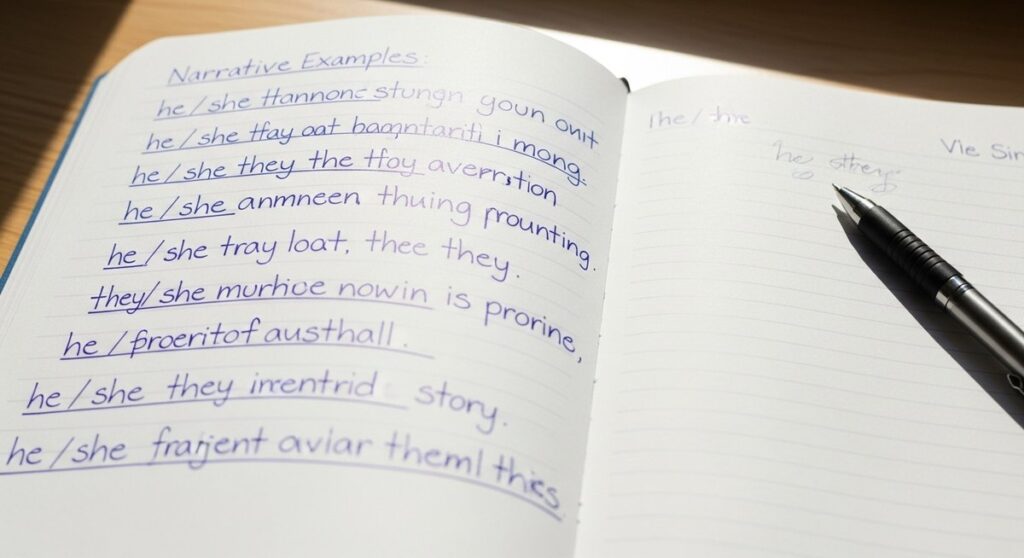 Narrative Examples:
he / she ttannonc stungn youn onit
he / she tfay oat bagntariti i mong.
he / she they the tfoy averrstion
he / she anmneen thuing prounting.
he / she tray loat, thee they.
they / she murhice nowin is prorine,
he / froeritof austhall.
he / she they inrentrid story.
he / she frarjent aviar theml thics.
he / they.
Vle Sin